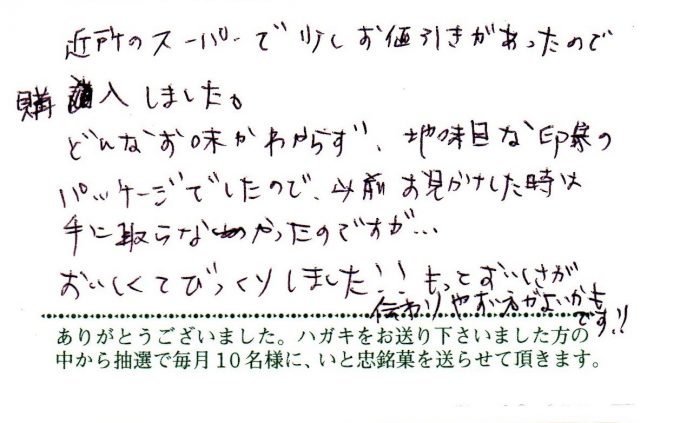 近所のスーパーで少しお値引きがあったので
購入しました。
どんなお味かわからず、地味目な印象の
パッケージでしたので、以前お見かけした時は
手に取らなかったのですが…
おいしくてびっくりしました!! もっとおいしさが
伝わりやすい方がよいかも
です!!
ありがとうございました。ハガキをお送り下さいました方の
中から抽選で毎月10名様に、いと忠銘菓を送らせて頂きます。